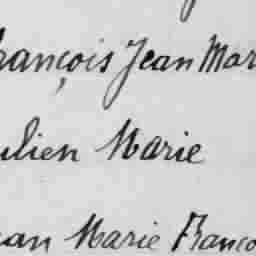 rançois Jean Mar
ulien Marie
ean Marie Franço